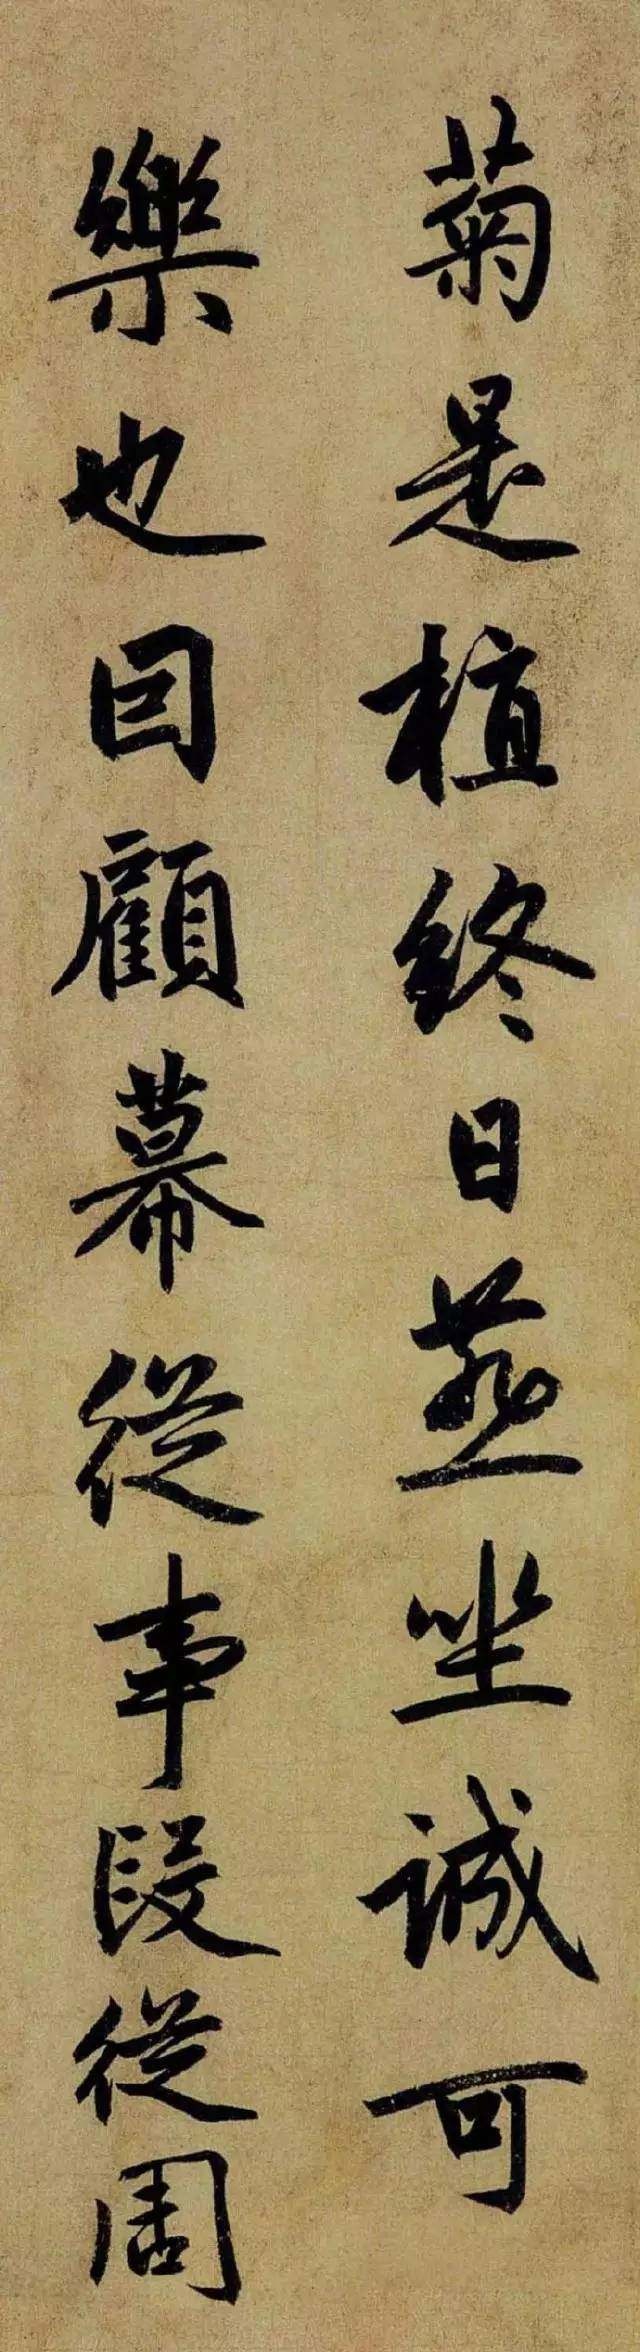 菊是植終日燕坐誠可
樂也因顧幕從事段從周